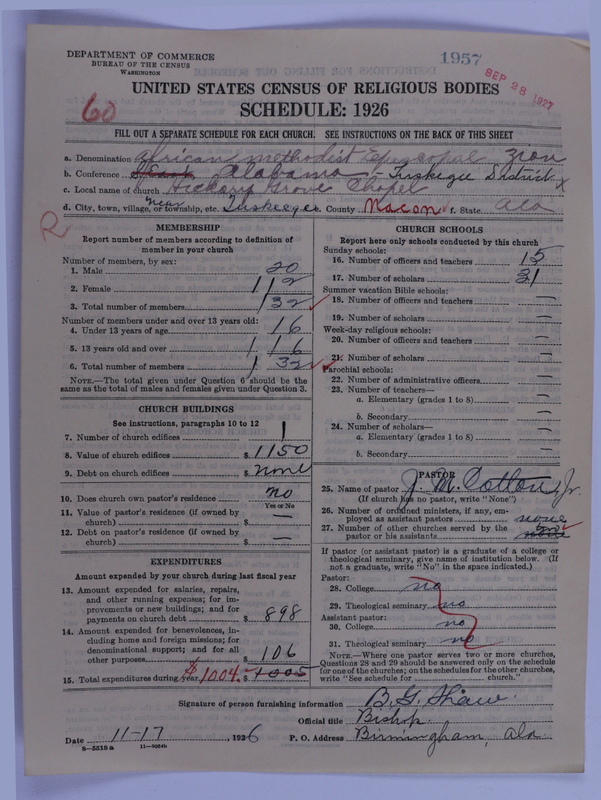 DEPARTMENT OF COMMERCE
BUREAU OF THE CENSUS
WASHINGTON
1957
SEP 28 1927
60
UNITED STATES CENSUS OF RELIGIOUS BODIES
SCHEDULE: 1926
FILL OUT A SEPARATE SCHEDULE FOR EACH CHURCH. SEE INSTRUCTIONS ON THE BACK OF THIS SHEET
a. Denomination African Methodist Episcopal Zion
b. Conference Alabama - Tuskegee District x
c. Local name of church Hickory Grove Chapel
d. City, town, village, or township, etc. near Tuskeegee County Macon f. State Ala
R
MEMBERSHIP
Report number of members according to definition of member in your church
Number of members, by sex:
1. Male 20
2. Female 112
3. Total number of members 132
Number of members under and over 13 years old:
4. Under 13 years of age 16
5. 13 years old and over 116
6. Total number of members 132
NOTE.—The total given under Question 6 should be the same as the total of males and females given under Question 3.
CHURCH BUILDINGS
See instructions, paragraphs 10 to 12
7. Number of church edifices 1
8. Value of church edifices $ 1150
9. Debt on church edifices $ none
10. Does church own pastor's residence no
Yes or No
11. Value of pastor's residence (if owned by church) $ —
12. Debt on pastor's residence (if owned by church) $ —
EXPENDITURES
Amount expended by your church during last fiscal year
13. Amount expended for salaries, repairs, and other running expenses; for improvements or new buildings; and for payments on church debt $ 898
14. Amount expended for benevolences, including home and foreign missions; for denominational support; and for all other purposes $ 106
15. Total expenditures during year $1004. $ 1005
CHURCH SCHOOLS
Report here only schools conducted by this church
Sunday schools:
16. Number of officers and teachers 15
17. Number of scholars 31
Summer vacation Bible schools:
18. Number of officers and teachers —
19. Number of scholars —
Week-day religious schools:
20. Number of officers and teachers —
21. Number of scholars —
Parochial schools:
22. Number of administrative officers —
23. Number of teachers—
a. Elementary (grades 1 to 8) —
b. Secondary —
24. Number of scholars—
a. Elementary (grades 1 to 8) —
b. Secondary —
PASTOR
25. Name of pastor J. M. Cotton, Jr.
(If church has no pastor, write "None")
26. Number of ordained ministers, if any, employed as assistant pastors none
27. Number of other churches served by the pastor or his assistants none
If pastor (or assistant pastor) is a graduate of a college or theological seminary, give name of institution below. (If not a graduate, write "No" in the space indicated.)
Pastor:
28. College no
29. Theological seminary no
Assistant pastor:
30. College no
31. Theological seminary no
NOTE.—Where one pastor serves two or more churches, Questions 28 and 29 should be answered only on the schedule for one of the churches; on the schedules for the other churches, write "See schedule for church."
Signature of person furnishing information B. G. Shaw.
Official title Bishop.
Date 11-17, 1926 P. O. Address Birmingham, Ala
8-5518a 11-9024b